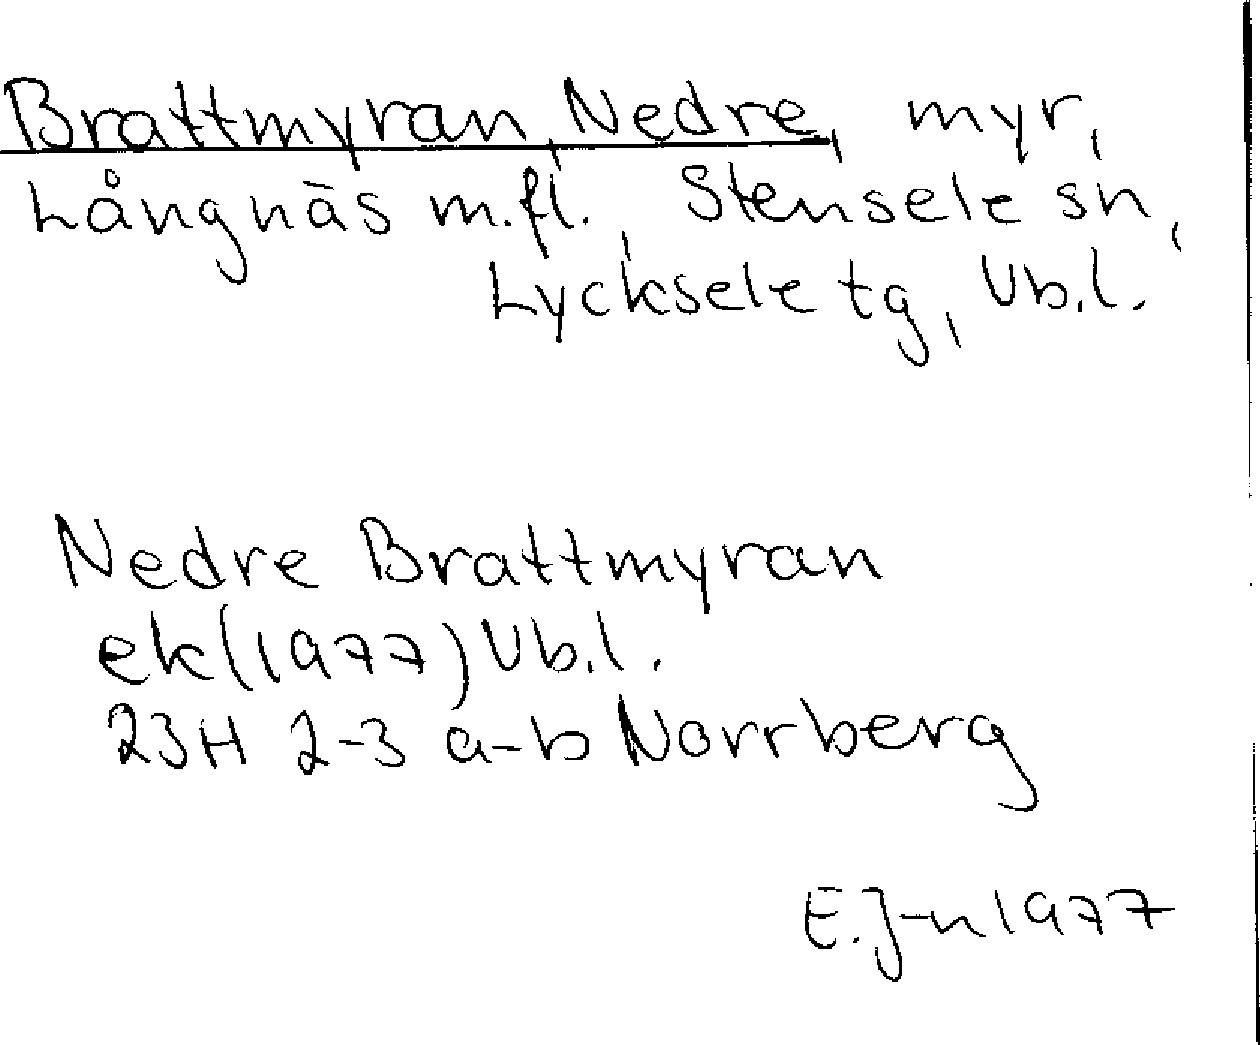 Brattmyran, Nedre, myr,
Långnäs m.fl., Stensele sn,
Lycksele tg, Vb.l.
Nedre Brattmyran
ek(1977) Vb.l.
23H 2-3 a-b Norrberg
E.J-n 1977